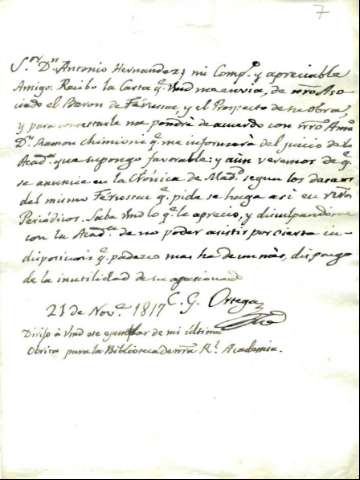 7
S.or D.n Antonio Hernandez, mi Comp.o y apreciable
Amigo. Recibo la Carta q.e Vmd me envia, de nro Aso-
ciado el Baron de Férussac, y el Prospecto de su obra,
y para contextarle me pondré de acuerdo con nro Amo
D.n Ramon q.e me informará del juicio de la
Acad.a que supongo favorable: y aún veremos de q.e
se anuncie en la Crónica de Mad.d segun los deseos
del mismo Férussac q.e pide se haga asi en
Periódicos. Sabe Vmd lo q.e le aprecio, y disculpandome
con la Acad.a de no poder asistir por cierta in-
disposicion q.e padezco mas ha de un mes, disponga
de la inutilidad de su apasionado
21 de Nov.e 1817 C. G. Ortega
Dirijo à Vmd ese exemplar de mi última
Obrita para la Biblioteca de nra R.l Academia.